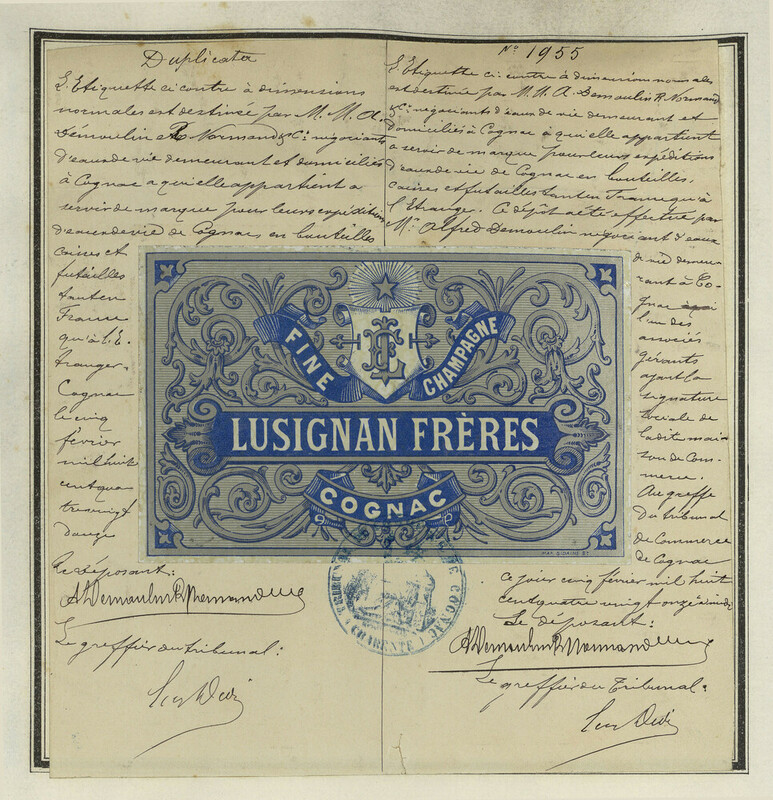 Duplicata
L'Etiquette ci contre à dimensions
normales est destinée par M. M. A.
Démoulin R. Normand & Cie négociants
d'eaux de vie demeurant et domiciliés
à Cognac a qu'elle appartient a
servir de marque pour leurs expéditions
d'eaux de vie de Cognac en bouteilles
caisses et
futailles
tant en
France
qu'à l'E
tranger.
Cognac
le cinq
février
mil huit
cent qua
tre vingt
douze
Le déposant:
A. Demoulin R. Normand
Le greffier du tribunal:
No 1955
L'Etiquette ci contre à dimensions normales
est destinée par M. M. A. Demoulin R. Normand
& Cie négociants d'eaux de vie demeurant et
domiciliés à Cognac à qu'elle appartient
a servir de marque pour leurs expéditions
d'eaux de vie de Cognac en bouteilles,
caisses et futailles tant en France qu'à
l'Etranger. Ce dépôt a été effectué par
Mr Alfred Demoulin négociant d'eaux
de vie demeu
rant à Co-
gnac
l'un des
associés
gérants
ayant la
signature
sociale de
la dite mai
son de Com-
merce.
Au greffe
du tribunal
de Commerce
de Cognac
ce jour cinq février mil huit
cent quatre vingt onze
Le déposant:
A. Demoulin R. Normand
Le greffier du Tribunal:
FINE CHAMPAGNE
LUSIGNAN FRÈRES
COGNAC
COGNAC
CHARENTE